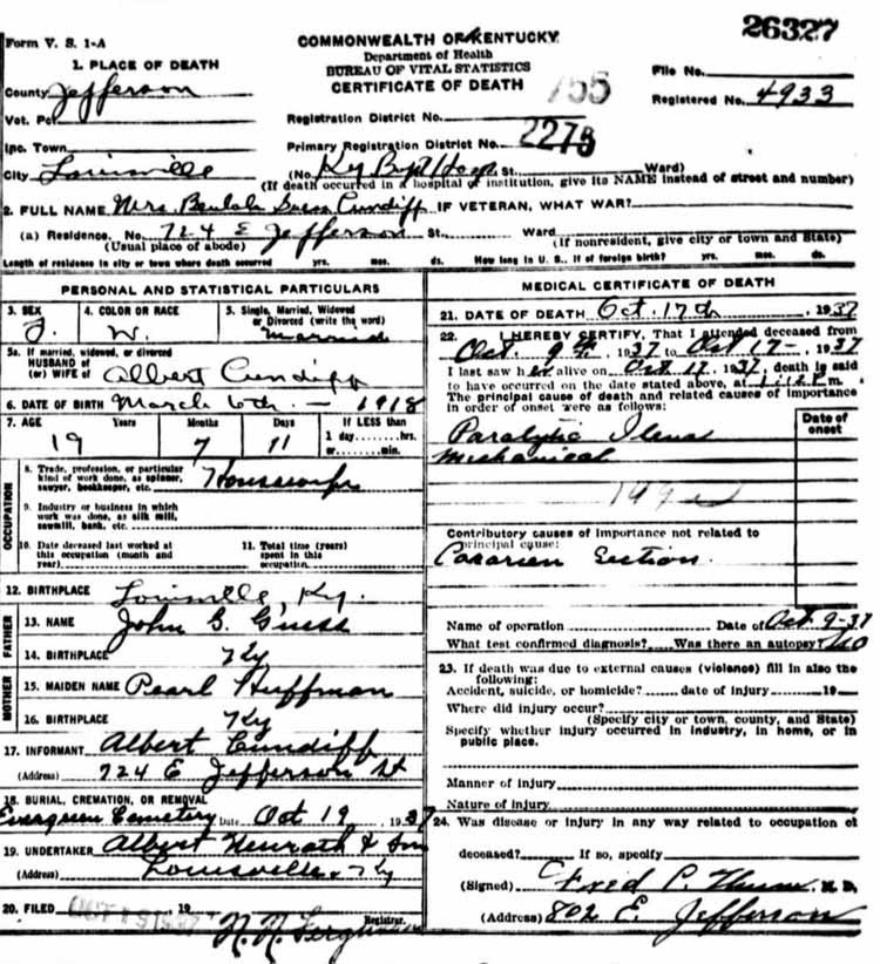 26327
Form V. S. 1-A
COMMONWEALTH OF KENTUCKY
Department of Health
BUREAU OF VITAL STATISTICS
CERTIFICATE OF DEATH
1. PLACE OF DEATH
County Jefferson
Vot. Pct
Inc. Town
City Louisville
755
File No.
Registered No. 4933
Registration District No.
Primary Registration District No. 2278
(No. Ky Bapt Hosp St. Ward)
(If death occurred in a hospital or institution, give its NAME instead of street and number)
2. FULL NAME Mrs. Beulah Cundiff IF VETERAN, WHAT WAR?
(a) Residence. No. 724 E Jefferson St. Ward
(Usual place of abode) (If nonresident, give city or town and State)
Length of residence in city or town where death occurred yrs. mos. ds. How long in U. S., if of foreign birth? yrs. mos. ds.
PERSONAL AND STATISTICAL PARTICULARS
3. SEX 4. COLOR OR RACE 5. Single, Married, Widowed
or Divorced (write the word)
F. W. Married
5a. If married, widowed, or divorced
HUSBAND of
(or) WIFE of Albert Cundiff
6. DATE OF BIRTH March 6th - 1918
7. AGE Years Months Days If LESS than
1 day........hrs.
or........min.
19 7 11
OCCUPATION
8. Trade, profession, or particular
kind of work done, as spinner,
sawyer, bookkeeper, etc. Housewife
9. Industry or business in which
work was done, as silk mill,
sawmill, bank, etc.
10. Date deceased last worked at
this occupation (month and
year)
11. Total time (years)
spent in this
occupation
12. BIRTHPLACE Louisville, Ky.
FATHER
13. NAME John G. Guess
14. BIRTHPLACE Ky
MOTHER
15. MAIDEN NAME Pearl Huffman
16. BIRTHPLACE Ky
17. INFORMANT Albert Cundiff
(Address) 724 E Jefferson St
18. BURIAL, CREMATION, OR REMOVAL
Evergreen Cemetery Date Oct 19 1937
19. UNDERTAKER Albert Neurath & Son
(Address) Louisville, Ky
20. FILED OCT 19 1937 19
Registrar.
MEDICAL CERTIFICATE OF DEATH
21. DATE OF DEATH Oct. 17th, 1937
22. I HEREBY CERTIFY, That I attended deceased from
Oct. 9th, 1937 to Oct 17-, 1937
I last saw her alive on Oct 17, 1937, death is said
to have occurred on the date stated above, at 1:12 P m.
The principal cause of death and related causes of importance
in order of onset were as follows:
Date of
onset
Paralytic Ileus
Mechanical
Contributory causes of importance not related to
principal cause:
Cesarien Section.
Name of operation Date of Oct. 9-37
What test confirmed diagnosis? Was there an autopsy? No
23. If death was due to external causes (violence) fill in also the
following:
Accident, suicide, or homicide? date of injury 19
Where did injury occur?
(Specify city or town, county, and State)
Specify whether injury occurred in industry, in home, or in
public place.
Manner of injury
Nature of injury
24. Was disease or injury in any way related to occupation of
deceased? If so, specify
(Signed) Fred P. M. D.
(Address) 802 E. Jefferson